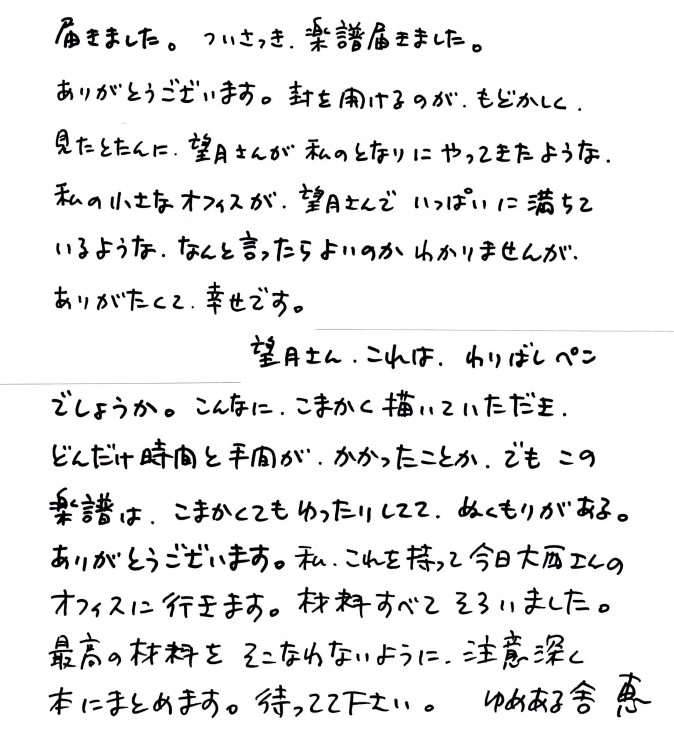 届きました。ついさっき、楽譜届きました。
ありがとうございます。封を開けるのが、もどかしく、
見たとたんに、望月さんが私のとなりにやってきたような、
私の小さなオフィスが、望月さんでいっぱいに満ちて
いるような、なんと言ったらよいのかわかりませんが、
ありがたくて、幸せです。
望月さん、これは、わりばしペン
でしょうか。こんなに、こまかく描いていただき、
どんだけ時間と手間が、かかったことか、でもこの
楽譜は、こまかくてもゆったりしてて、ぬくもりがある。
ありがとうございます。私、これを持って今日大西さんの
オフィスに行きます。材料すべてそろいました。
最高の材料をそこなわないように、注意深く
本にまとめます。待ってて下さい。 ゆめある舎 恵